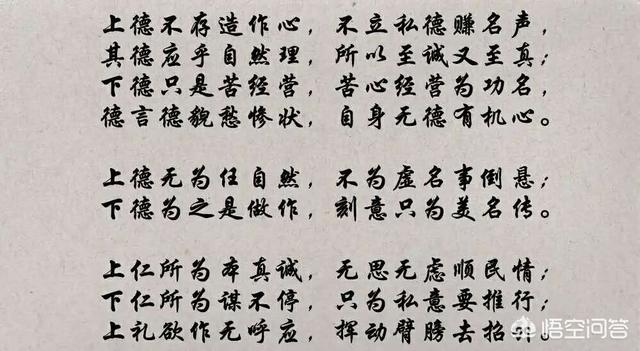 上德不存造作心，不立私德赚名声，
其德应乎自然理，所以至诚又至真；
下德只是苦经营，苦心经营为功名，
德言德貌愁惨状，自身无德有机心。
上德无为任自然，不为虚名事倒悬；
下德为之是做作，刻意只为美名传。
上仁所为本真诚，无思无虑顺民情；
下仁所为谋不停，只为私意要推行；
上礼欲作无呼应，挥动臂膀去招引。
悟空问答